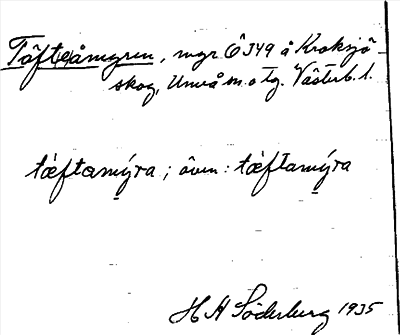 Töfteåmyren, myr Ö 349 å Kroksjö-
skog, Umeå sn o tg. Västerb. l.
tèftamýra; även: tèftamýra
H A Söderberg 1935